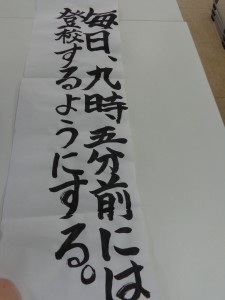 毎日、九時五分前には
登校するようにする。